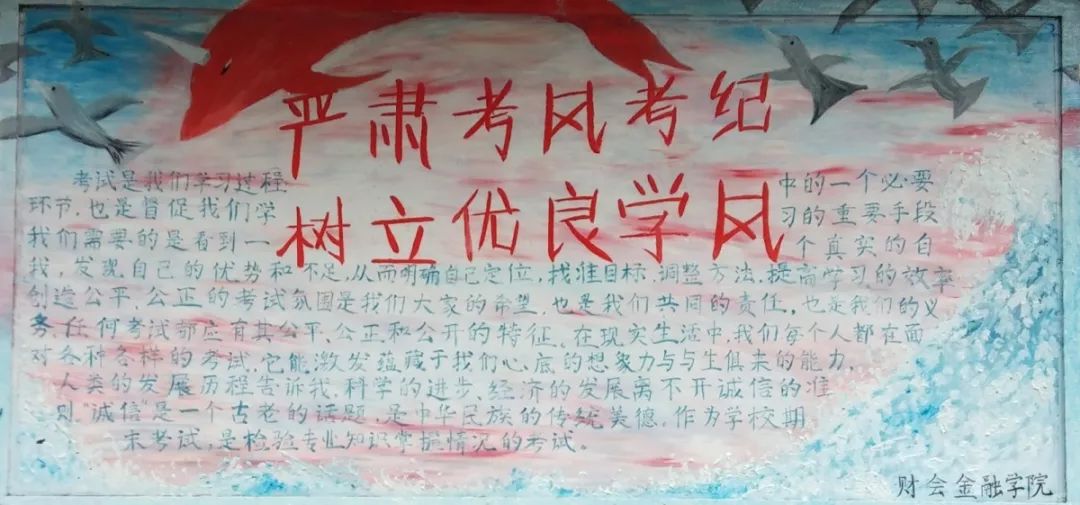 严肃考风考纪
树立优良学风
考试是我们学习过程中的一个必要
环节,也是督促我们学习的重要手段
我们需要的是看到一个真实的自
我,发现自己的优势和不足,从而明确自己定位,找准目标,调整方法,提高学习的效率
创造公平、公正的考试氛围是我们大家的希望,也是我们共同的责任,也是我们的义
务任何考试都应有其公平、公正和公开的特征,在现实生活中,我们每个人都在面
对各种各样的考试,它能激发蕴藏于我们心底的想象力与与生俱来的能力,
人类的发展历程告诉我,科学的进步、经济的发展离不开诚信的准
则,"诚信"是一个古老的话题,是中华民族的传统美德,作为学校期
末考试,是检验专业知识掌握情况的考试。
财会金融学院